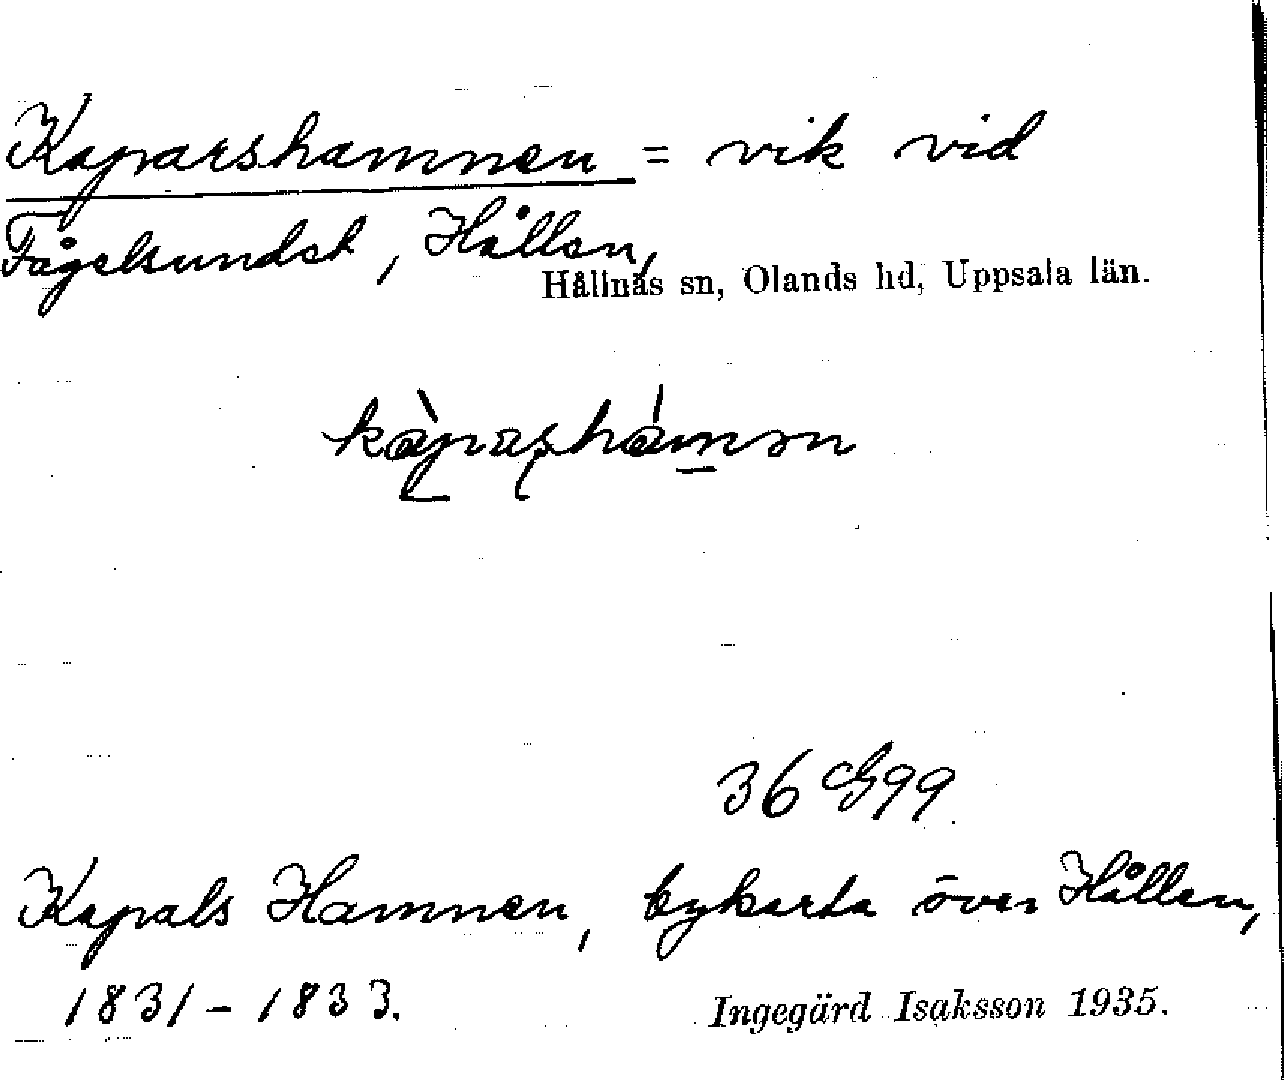 Kaparshamnen = vik vid
Fågelsundet, Hållen,
Hållnäs sn, Olands hd, Uppsala län.
kàpaʂhámən
36 G 99
Kapals Hamnen, bykarta över Hållen,
1831-1833.
Ingegärd Isaksson 1935.